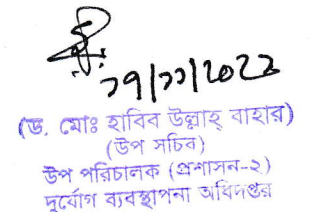 (ড. মোঃ হাবিব উল্লাহ্ বাহার)
(উপ সচিব)
উপ পরিচালক (প্রশাসন-২)
দুর্যোগ ব্যবস্থাপনা অধিদপ্তর